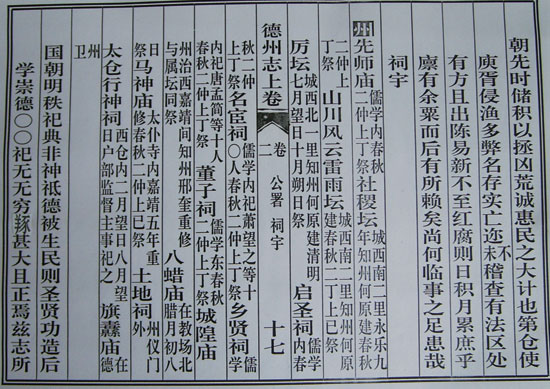 朝先时储积以拯凶荒诚惠民之大计也第仓使
庾胥侵渔多弊名存实亡迩未不稽查有法区处
有方且出陈易新不至红腐则日积月累庶乎
廪有余粟而后有所赖矣尚何临事之足患哉
祠宇
州先师庙儒学内春秋二仲上丁祭社稷坛城西南二里永乐九年知州何原建春秋
二仲上丁祭山川风云雷雨坛城西南二里知州何原建春秋二丁上巳祭
厉坛城西北一里知州何原建清明七月望日十月朔日祭启圣祠儒学内春
德州志上卷
二卷 公署 祠宇 十七
秋二仲上丁祭名宦祠儒学内祀萧望之等十〇人春秋二仲上丁祭乡贤祠儒学
内祀唐孟简等十人春秋二仲上丁祭董子祠儒学东春秋二仲上丁祭城隍庙
州治西嘉靖间知州邢奎重修与属坛同祭八蜡庙在教场北腊月初八
日祭马神庙太仆寺内嘉靖五年重修春秋二仲上巳祭土地祠州仪门外
太仓行神祠西仓内二月望日八月望日户部监督主事祀之旗纛庙在州卫
国朝明秩祀典非神祗德被生民则圣贤功造后
学崇德〇〇祀无无穷甚大且正焉兹志所